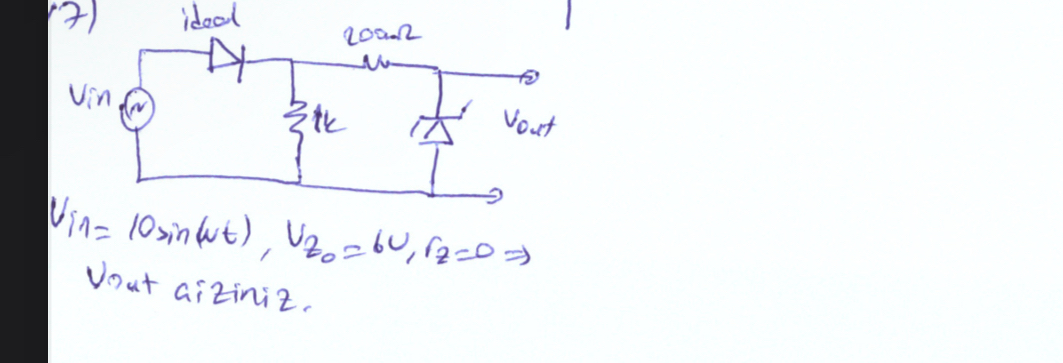 7)
ideal
200Ω
Vin
1k
Vout
Vin= 10sin(wt), Vz₀=6V, rz=0 ⇒
Vout çiziniz.